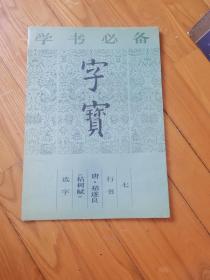 学书必备
字寳
七
行书
唐·褚遂良
《枯树赋》
选字